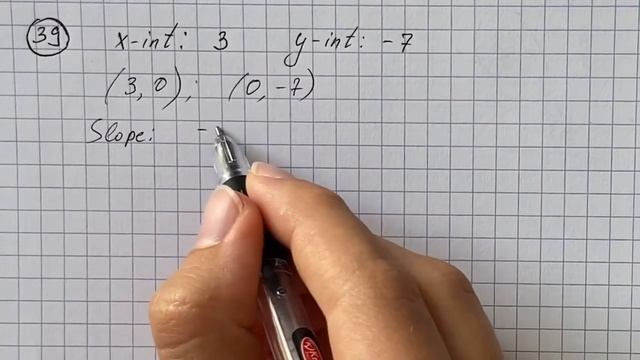 39 x-int: 3 y-int: -7
(3, 0); (0, -7)
Slope: -